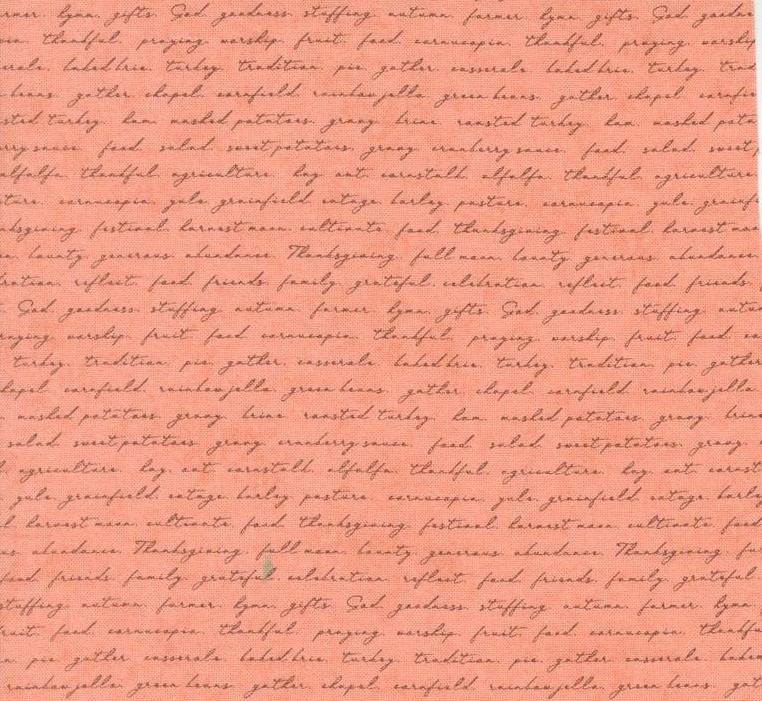 hymn, gifts, God, goodness, stuffing, autumn, farmer, hymn, gifts, God,
thankful, praying, worship, fruit, food, cornucopia, thankful, praying, worship
baked brie, turkey, tradition, pie, gather, casserole, baked brie, turkey,
gather, chapel, cornfield, rainbow jello, green beans, gather, chapel
turkey, ham, mashed potatoes, gravy, brine, roasted turkey, ham, mashed
food, salad, sweet potatoes, gravy, cranberry sauce, food, salad,
alfalfa, thankful, agriculture, hay, oat, cornstalk, alfalfa, thankful, agriculture,
cornucopia, yule, grainfield, eatage, barley, pasture, cornucopia, yule,
festival, harvest moon, cultivate, food, thanksgiving, festival, harvest
bounty, generous, abundance, Thanksgiving, full moon, bounty, generous, abundance,
reflect, food, friends, family, grateful, celebration, reflect, food, friends,
God, goodness, stuffing, autumn, farmer, hymn, gifts, God, goodness, stuffing,
worship, fruit, food, cornucopia, thankful, praying, worship, fruit, food,
turkey, tradition, pie, gather, casserole, baked brie, turkey, tradition, pie, gather
cornfield, rainbow jello, green beans, gather, chapel, cornfield, rainbow jello,
mashed potatoes, gravy, brine, roasted turkey, ham, mashed potatoes, gravy,
salad, sweet potatoes, gravy, cranberry sauce, food, salad, sweet potatoes, gravy,
agriculture, hay, oat, cornstalk, alfalfa, thankful, agriculture, hay, oat,
yule, grainfield, eatage, barley, pasture, cornucopia, yule, grainfield, eatage,
harvest moon, cultivate, food, thanksgiving, festival, harvest moon, cultivate, food
abundance, Thanksgiving, full moon, bounty, generous, abundance, Thanksgiving,
food, friends, family, grateful, celebration, reflect, food, friends, family, grateful,
stuffing, autumn, farmer, hymn, gifts, God, goodness, stuffing, autumn, farmer, hymn,
food, cornucopia, thankful, praying, worship, fruit, food, cornucopia,
pie, gather, casserole, baked brie, turkey, tradition, pie, gather, casserole,
rainbow jello, green beans, gather, chapel, cornfield, rainbow jello, green beans,